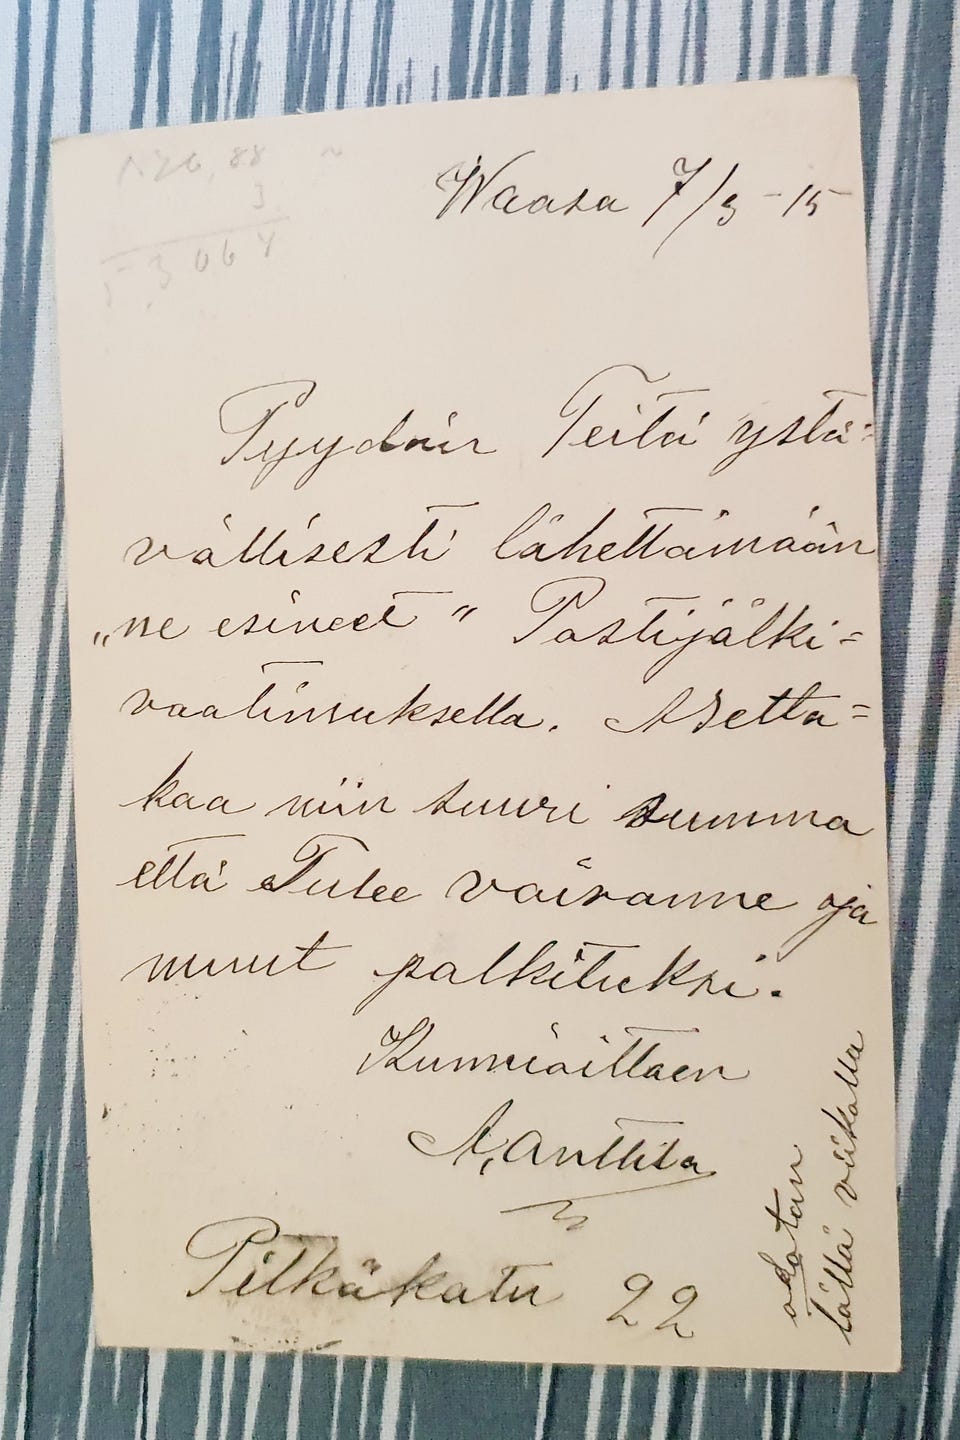 Waasa 7/3 -15
Pyydän Teitä ystä=
vällisesti lähettämään
„ne esineet" Postijälki=
vaatimuksella. Asetta=
kaa niin suuri summa
että Tulee vaivanne ja
muut palkituksi.
Kunnioittaen
A, Anttila
Pitkäkatu 22
odotan
tällä viikolla